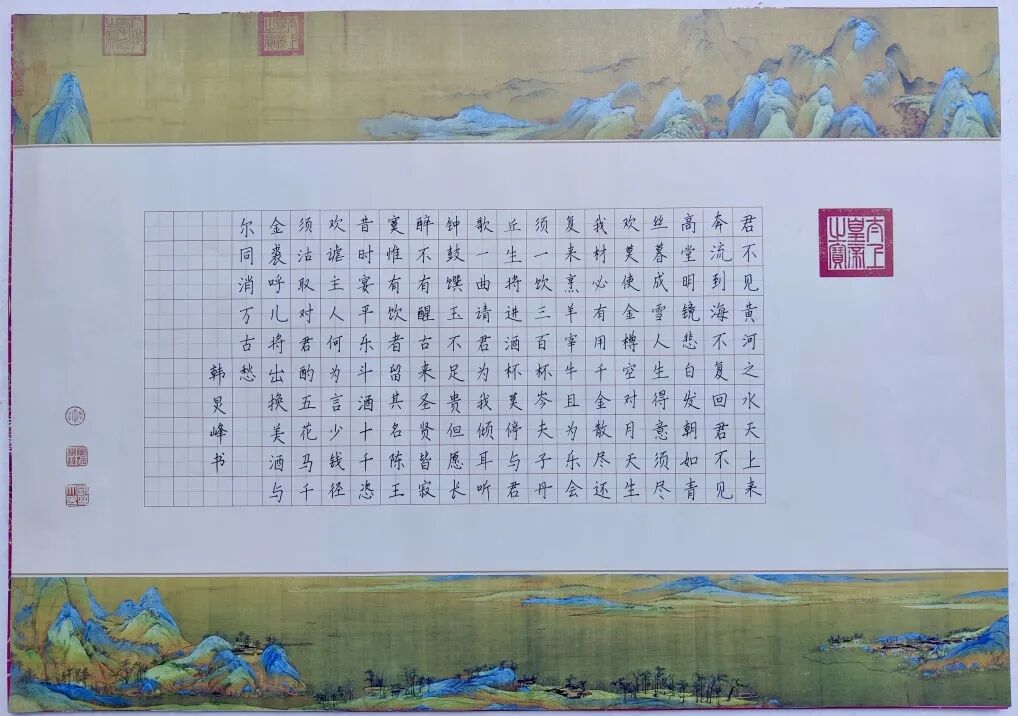 太上皇帝之寶
君不见黄河之水天上来
奔流到海不复回君不见
高堂明镜悲白发朝如青
丝暮成雪人生得意须尽
欢莫使金樽空对月天生
我材必有用千金散尽还
复来烹羊宰牛且为乐会
须一饮三百杯岑夫子丹
丘生将进酒杯莫停与君
歌一曲请君为我倾耳听
钟鼓馔玉不足贵但愿长
醉不有醒古来圣贤皆寂
寞惟有饮者留其名陈王
昔时宴平乐斗酒十千恣
欢谑主人何为言少钱径
须沽取对君酌五花马千
金裘呼儿将出换美酒与
尔同消万古愁
韩炅峰书